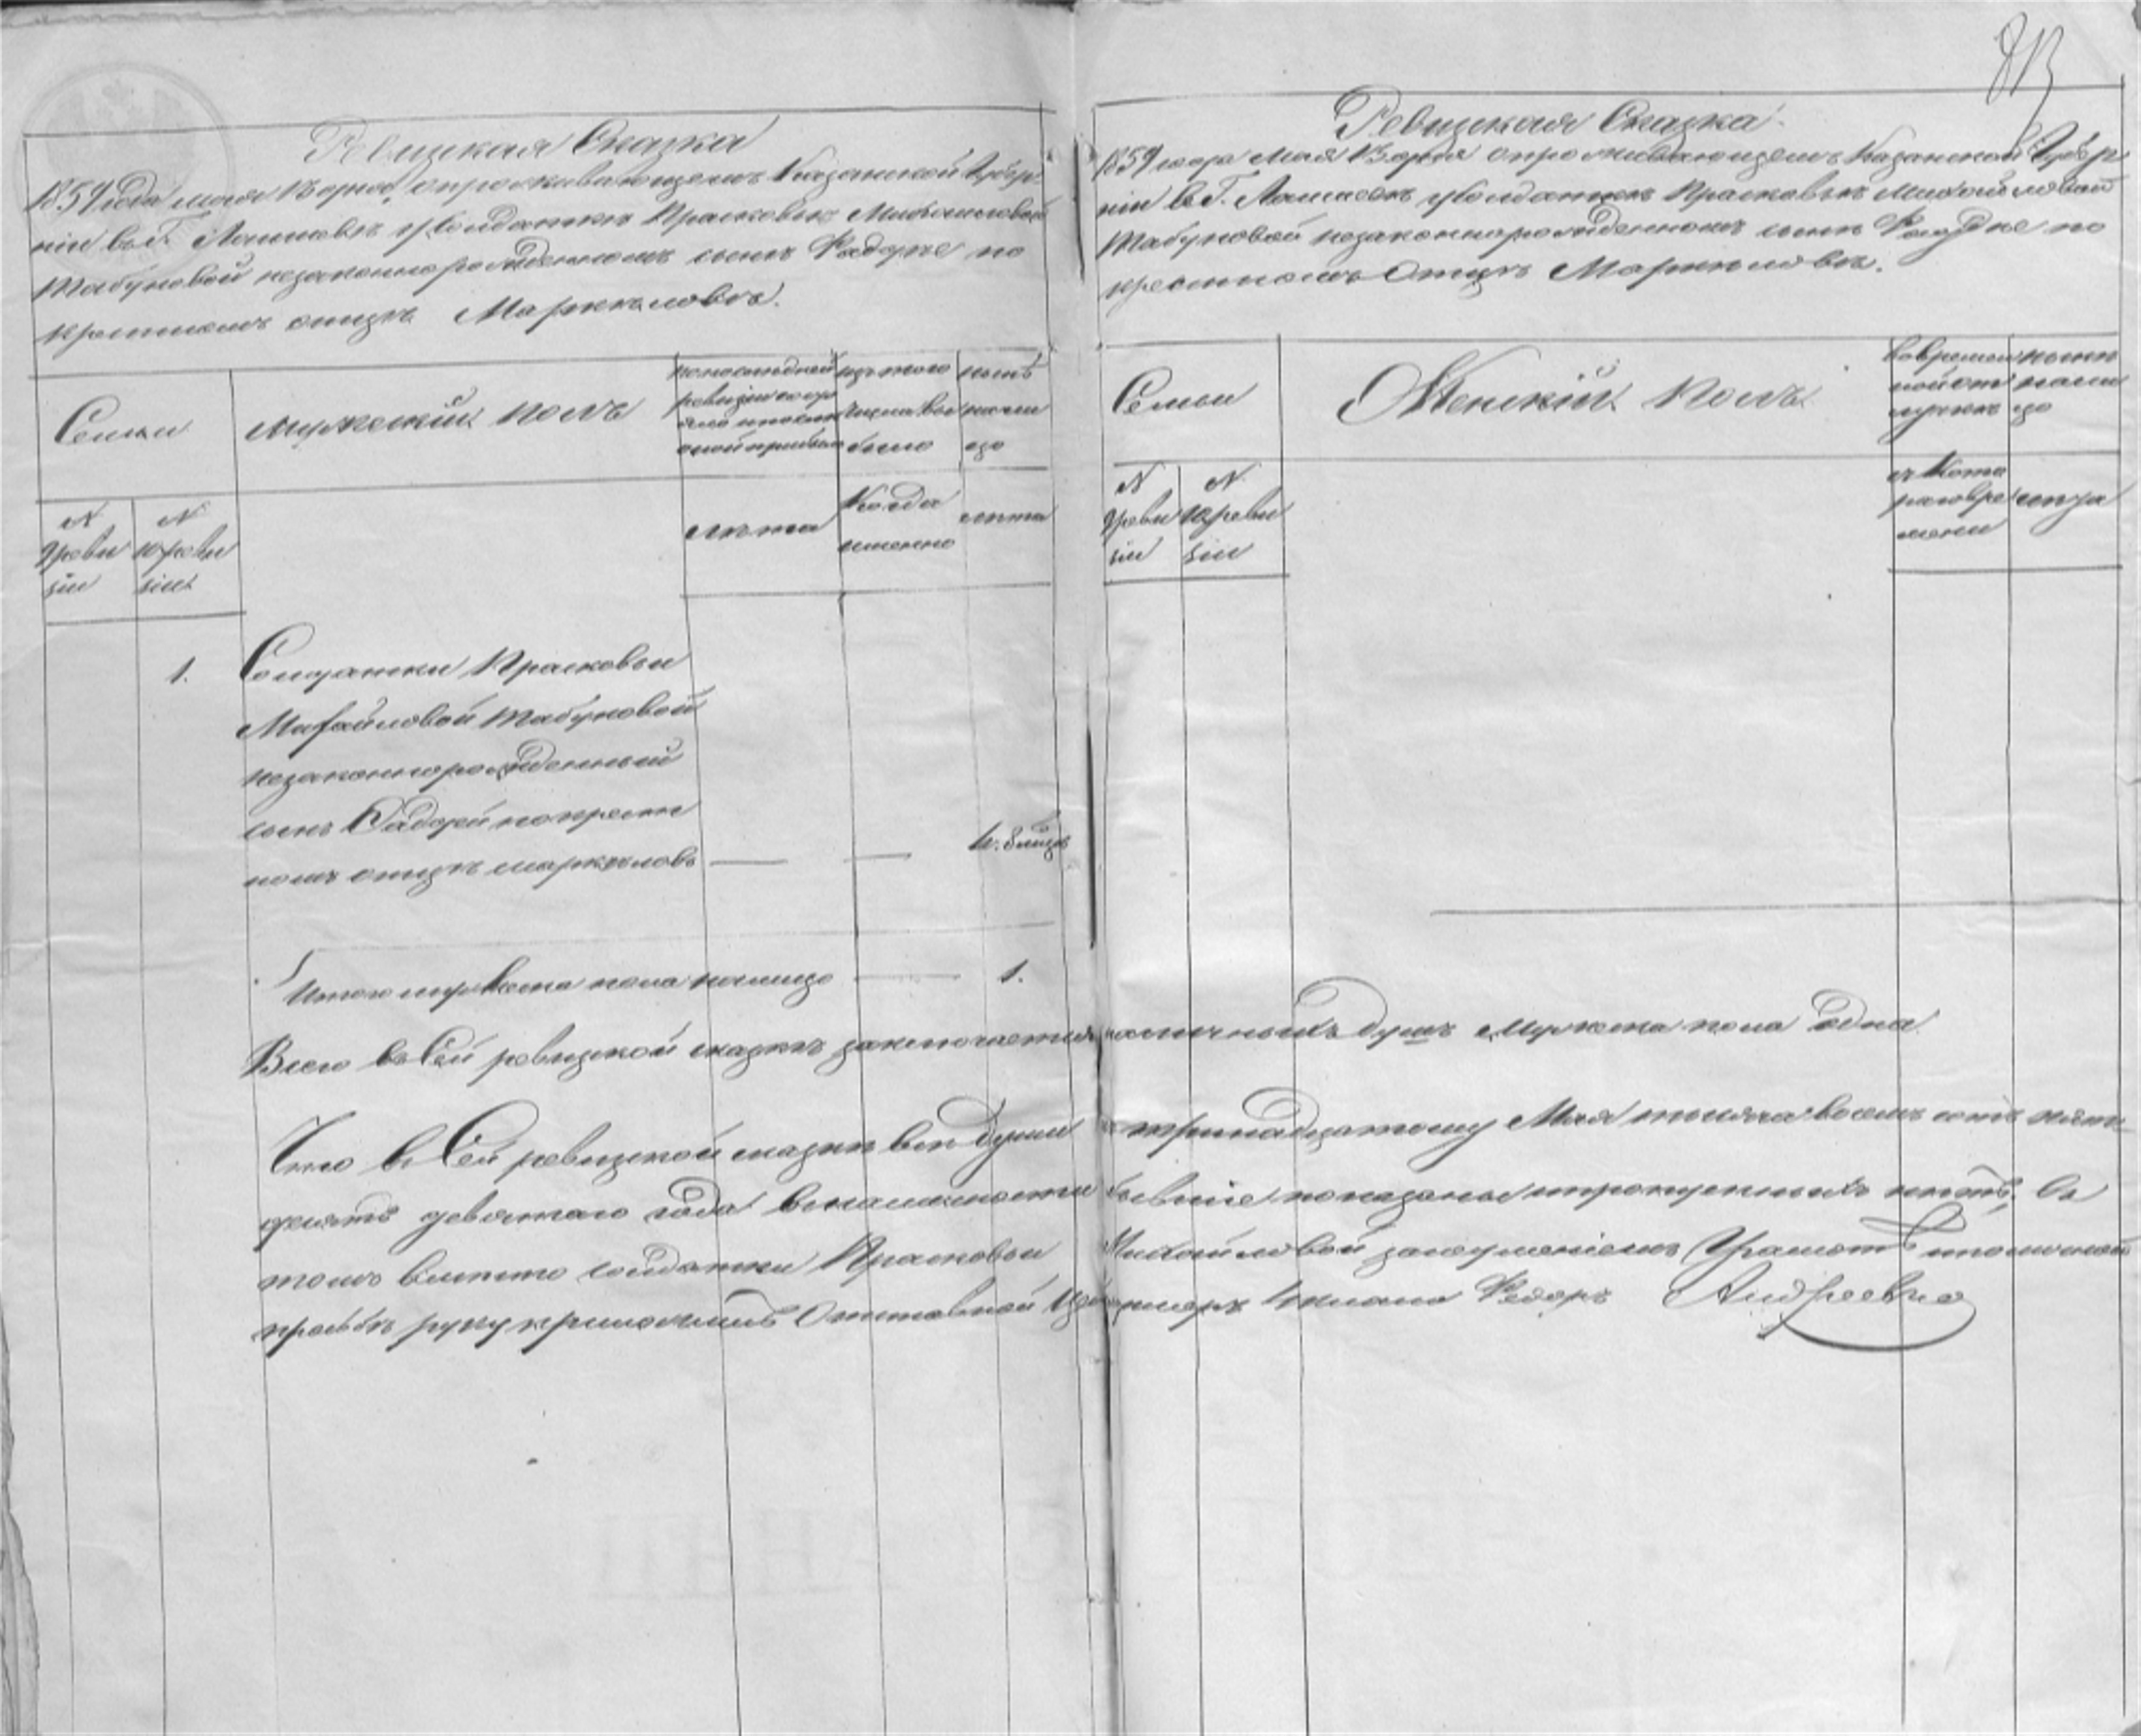 Ревизская Сказка
1859 года мая 13 дня, о проживающемъ Казанской Губер
ніи въ Г. Лаишевѣ у солдатки Прасковьи Михайловой
Табуновой незаконнорожденномъ сынѣ Фадѣе по
крестномъ отцѣ Маркѣловѣ.
Семьи
мужескій полъ
по последней ревизіи
изъ того числа выбыло
нынѣ на лицо
N 9 ревизіи
N 10 ревизіи
лѣта
Когда именно
лѣта
1. Солдатки Прасковьи
Михайловой Табуновой
незаконнорожденный
сынъ Фадѣй по крест
номъ отцѣ маркѣловъ
Итого мужеска пола налицо 1.
813
Ревизская Сказка
1859 года Мая 13 дня о проживающемъ Казанской Губер
ніи въ Г. Лаишевѣ у солдатки Прасковьи Михайловой
Табуновой незаконнорожденномъ сынѣ по
крестномъ Отцѣ Маркѣловѣ.
Семьи
Женскій полъ
во временной отлучкѣ
нынѣ налицо
N 9 ревизіи
N 10 ревизіи
съ Котораго времени
лѣта
Всего въ Сей ревизской сказкѣ заключается наличныхъ душъ Мужеска пола одна
Что въ Сей ревизской сказкѣ всѣ души къ тринадцатому Мая тысяча восемь сотъ пять
десятъ девятаго года въ наличности бывшіе показаны и пропущенныхъ нѣтъ, въ
томъ вместо солдатки Прасковьи Михайловой
прозьбѣ руку приложилъ Отставной Федоръ Андреевъ